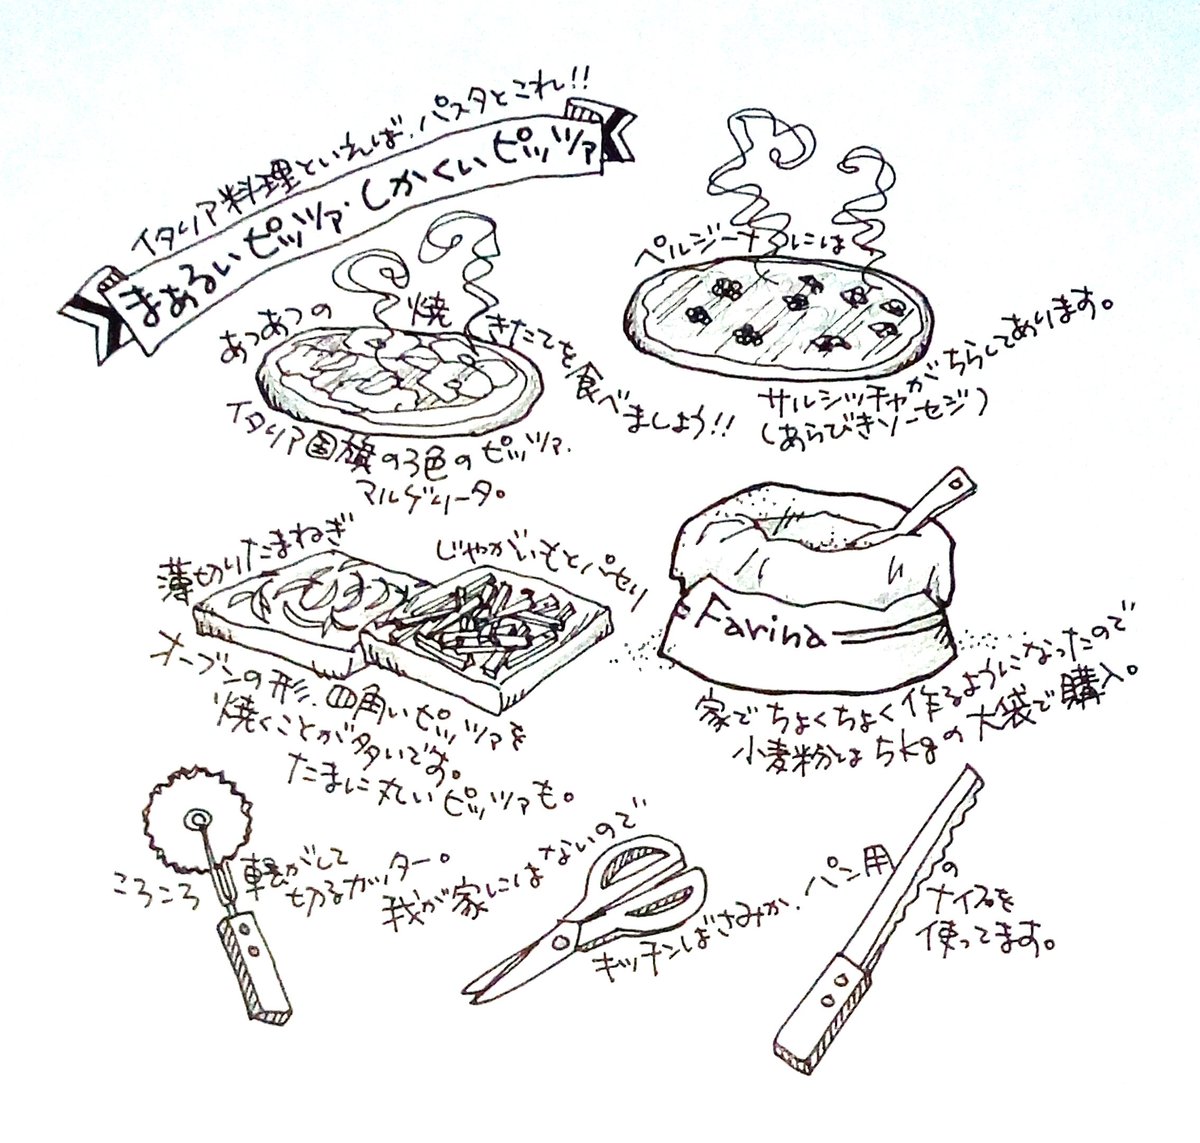 イタリア料理といえば、パスタとこれ!!
まあるいピッツァ・しかくいピッツァ
あつあつの焼きたてを食べましょう!!
イタリア国旗の3色のピッツァ、
マルゲリータ。
ペルジーナには
サルシッチャがちらしてあります。
(あらびきソーセージ)
薄切りたまねぎ
じゃがいもとパセリ
オーブンの形、四角いピッツァを
焼くことが多いです。
たまに丸いピッツァも。
Farina
家でちょくちょく作るようになったので
小麦粉は5kgの大袋で購入。
ころころ転がして
切るカッター。
我が家にはないので
キッチンばさみか、パン用の
ナイフを
使ってます。